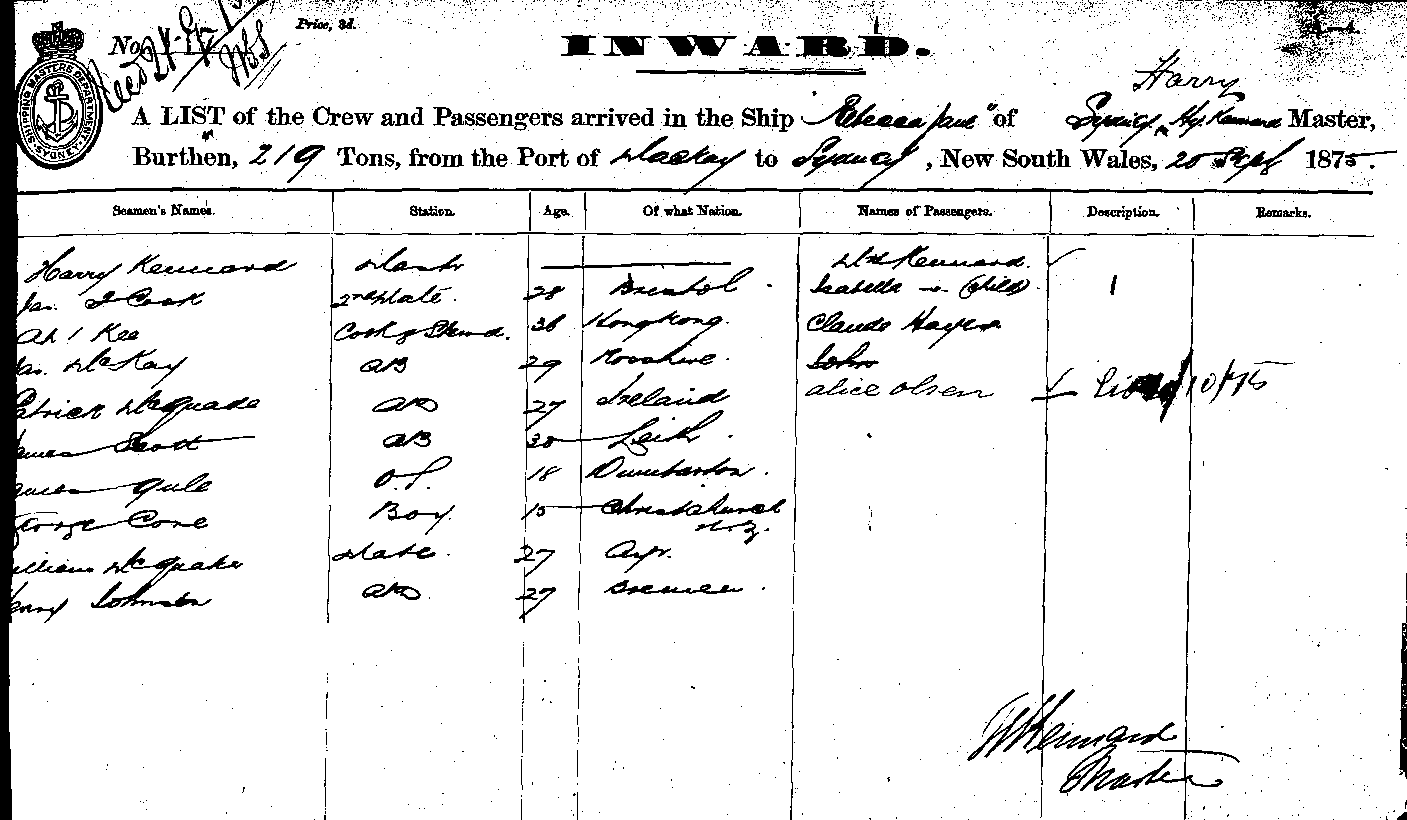 No.
Price, 3d.
INWARD.
SHIPPING MASTERS DEPARTMENT
Harry
A LIST of the Crew and Passengers arrived in the Ship "Rebecca Jane" of Sydney, Hy. Kennard Master,
Burthen, 219 Tons, from the Port of Mackay to Sydney, New South Wales, 20 Sept 1875.
Seamen's Names. Station. Age. Of what Nation. Names of Passengers. Description. Remarks.
Harry Kennard Master Mrs Kennard
Jas. J Cook 2nd Mate. 28 Bristol. Isabella (child) 1
Ah Kee Cook & Stewd. 36 HongKong. Claude
Jas. McKay AB 29 John
Patrick McQuade AB 27 Ireland alice olsen
James Scott AB 30 Leith.
James O.S. 18 Dumbarton.
George Boy. 15 Christchurch
N.Z.
William Mate. 27 Ayr.
Henry Johnson AB 27 Bremen.
Kennard
Master